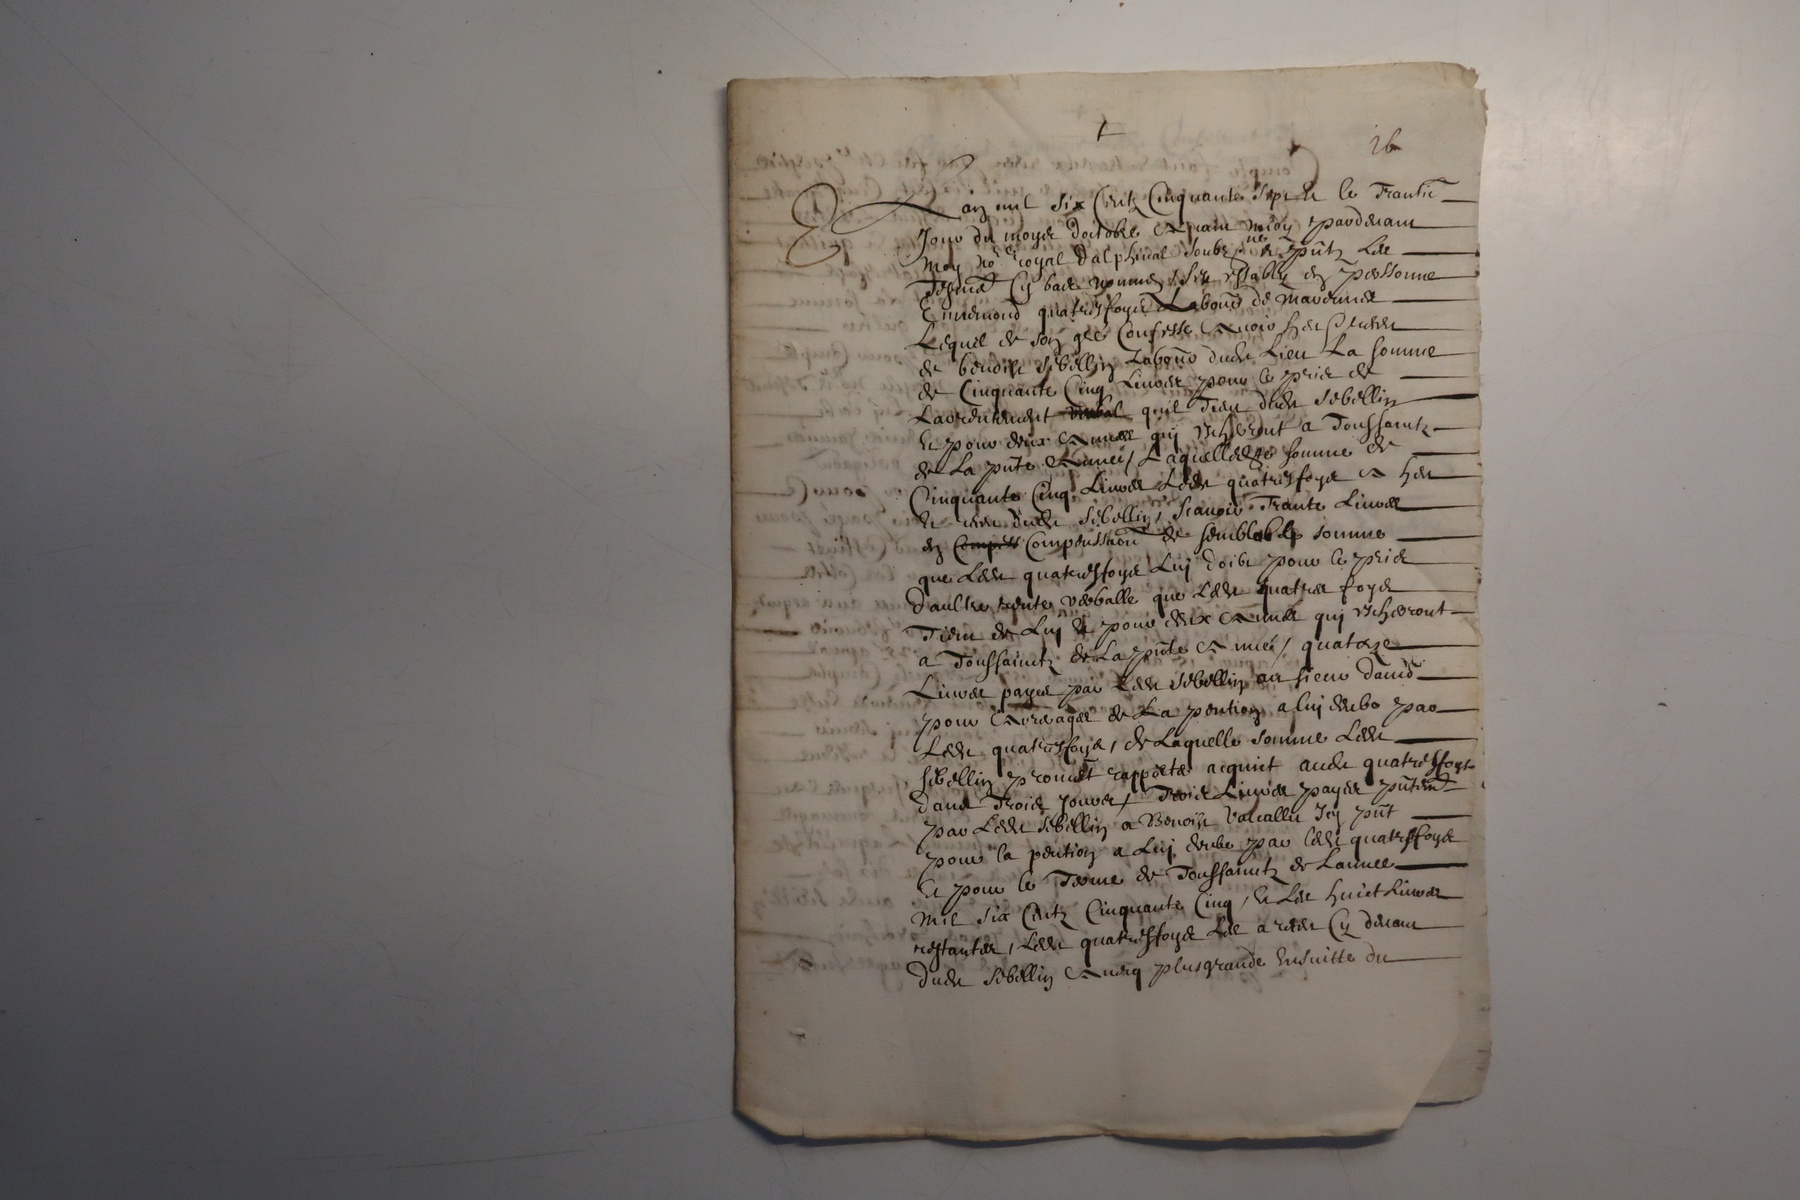 26
Lan mil six Centz Cinquante sept et le Trantie
Jour du moys doctobre avant midy pardevant
moy no.re royal dalphinal soubz.ne et pntz les
Tesmoins Cy bas nommes, sen establi en personne
Ennemond quatresfoys Labour de
Lequel de son gré Confesse avoir heu et receu
de benoist sibellin Labour dudt Lieu La somme
de Cinquante Cinq Livres pour le pris de
quil Tien dudt sibellin
et pour deux annees quj escheront a Toussaintz
de La pnte annee, Laquelle somme de
Cinquante Cinq Livres Ledt quatresfoys a heu
et receu dudt sibellin, scavoir Trante Livres
en Compensaon de semblable somme
que Ledt quatresfoys Luj doibt pour le pris
daultre vente verballe que Ledt quatres foys
Tien de Luj et pour deux annees quj escheront
a Toussaintz de La pnte annee, quatorze
Livres payes par Ledt sibellin au sieur david
pour arreages de La pention a luj deube par
Ledt quatresfoys, de Laquelle somme Ledt
sibellin promet rapporter acquict audt quatresfoys
dans Trois Jours, Trois Livres payes pntemt
par Ledt sibellin a Benoist Icy pnt
pour la pention a Luj deube par ledt quatresfoys
et pour le Terme de Toussaintz de Lannee
mil six Centz Cinquante Cinq, et Les huict Livres
restantes, Ledt quatresfoys Les a receu Cy devant
dudt sibellin plusgrande Ensuitte du